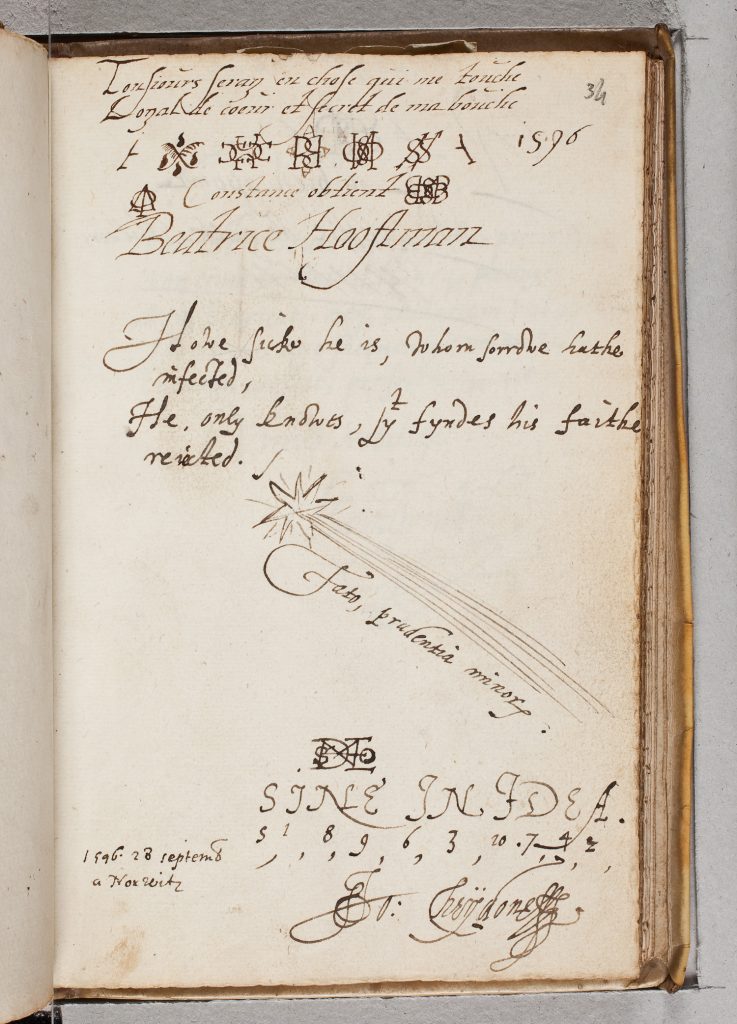 Tousjours seray en chose qui me touche
Loyal de coeur et secret de ma bouche
34
1596
Constance obtient
Beatrice Hooftman
Howe sicke he is, whom sorrowe hathe
infected,
He, only knowes, yt fyndes his faithe
reiected.
Fato, prudentia minor
SINE INIDEA.
5 1, 8, 9, 6, 3, 10. 7, 4, 2,
1596. 28 septemb
a Norwitz
Jo: